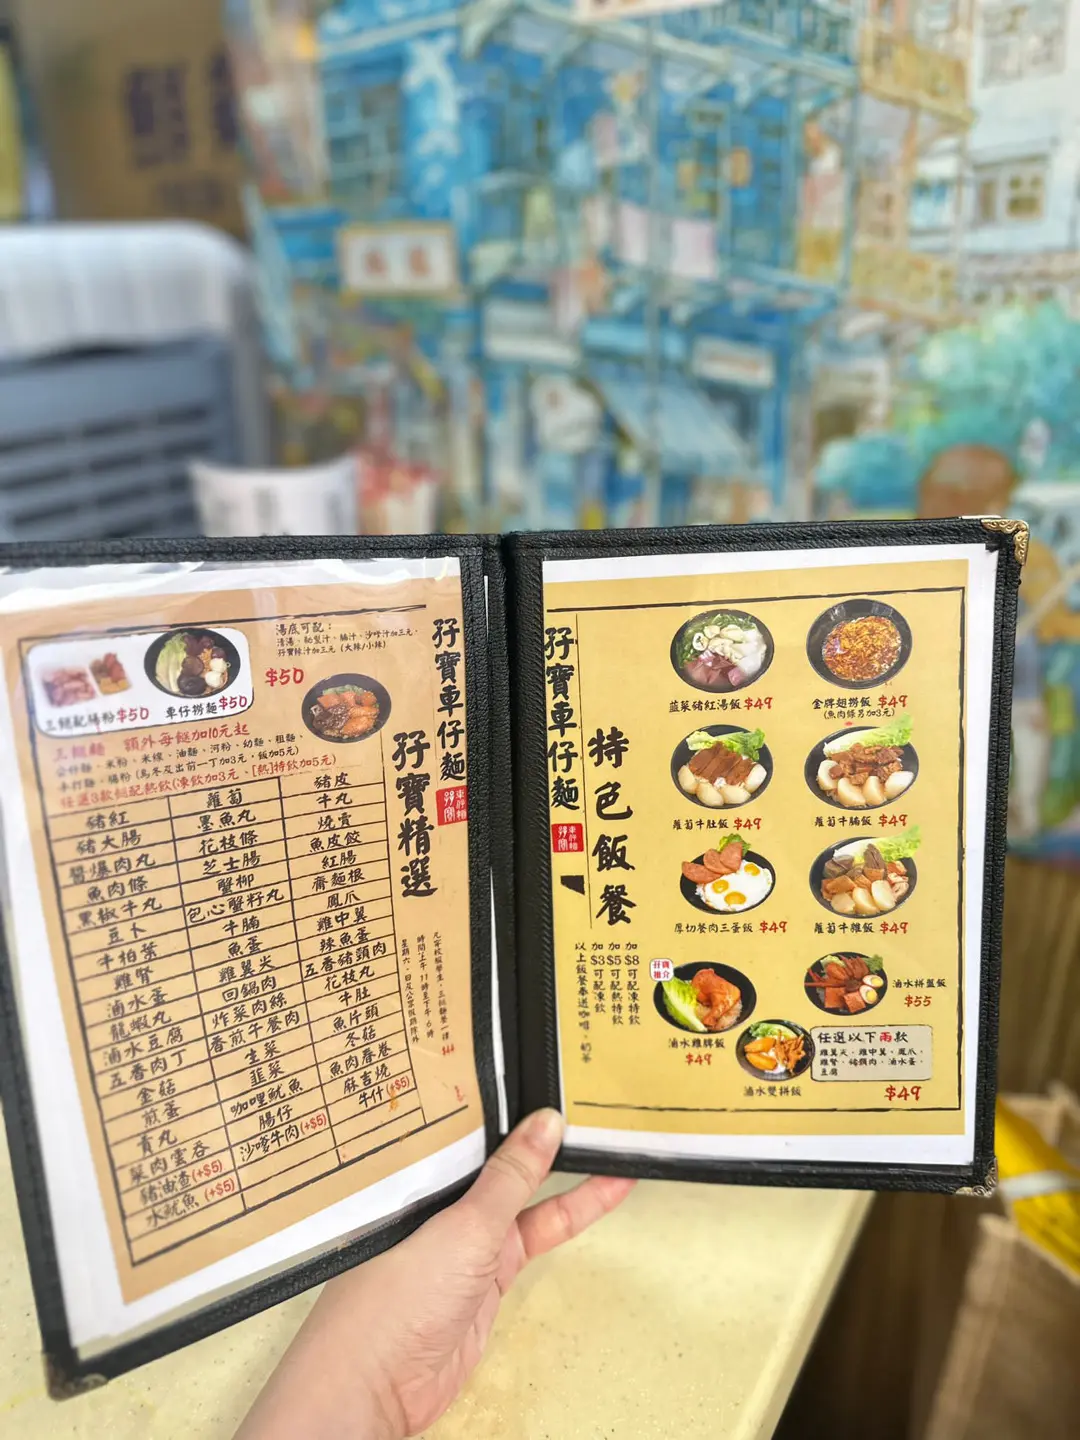 湯底可配:
清湯、秘製汁、腩汁、沙嗲汁加三元、
孖寶辣汁加三元(大辣/小辣)
$50
三餸配腸粉$50
車仔撈麵$50
三餸麵 額外每餸加10元起
公仔麵、米粉、米線、油麵、河粉、幼麵、粗麵、
車打麵、腸粉(烏冬及出前一丁加3元、飯加5元)
任選3款餸配熱飲(凍飲加3元、[熱]特飲加5元)
孖寶車仔麵
孖寶精選
豬紅 蘿蔔 豬皮
豬大腸 墨魚丸 牛丸
醬爆肉丸 花枝條 燒賣
魚肉條 芝士腸 魚皮餃
黑椒牛丸 蟹柳 紅腸
豆卜 包心蟹籽丸 齋麵根
牛柏葉 牛腩 鳳爪
雞腎 魚蛋 雞中翼
滷水蛋 雞翼尖 辣魚蛋
龍蝦丸 回鍋肉 五香豬頸肉
滷水豆腐 炸菜肉絲 花枝丸
五香肉丁 香煎午餐肉 牛肚
金菇 生菜 魚片頭
煎蛋 韮菜 冬菇
貢丸 咖哩魷魚 魚肉春卷
菜肉雲吞 腸仔 麻吉燒
豬油渣(+$5) 沙嗲牛肉(+$5) 牛什(+$5)
水魷魚(+$5)
時間上午11時至下午6時
星期六、日及公眾假期除外
孖寶車仔麵
特色飯餐
加$8可配凍特飲
加$5可配熱特飲
加$3可配凍飲
以上飯餐奉送咖啡、奶茶
韮菜豬紅湯飯 $49
金牌翅撈飯 $49
(魚肉條另加3元)
蘿蔔牛肚飯 $49
蘿蔔牛腩飯 $49
厚切餐肉三蛋飯 $49
蘿蔔牛雜飯 $49
滷水雞脾飯
$49
滷水拼盤飯
$55
滷水雙拼飯
任選以下兩款
雞翼尖、雞中翼、鳳爪、
雞腎、豬頸肉、滷水蛋、
豆腐
$49